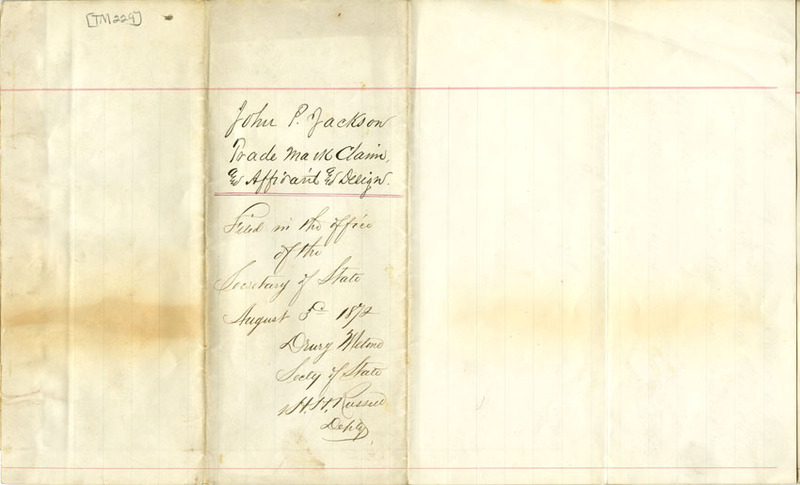 [TM229]
John P. Jackson
Trade Mark Claim,
& Affidavit & Design.
Filed in the office
of the
Secretary of State
August 1872
Drury Melone
Secty of State
H. H. Russell
Depty